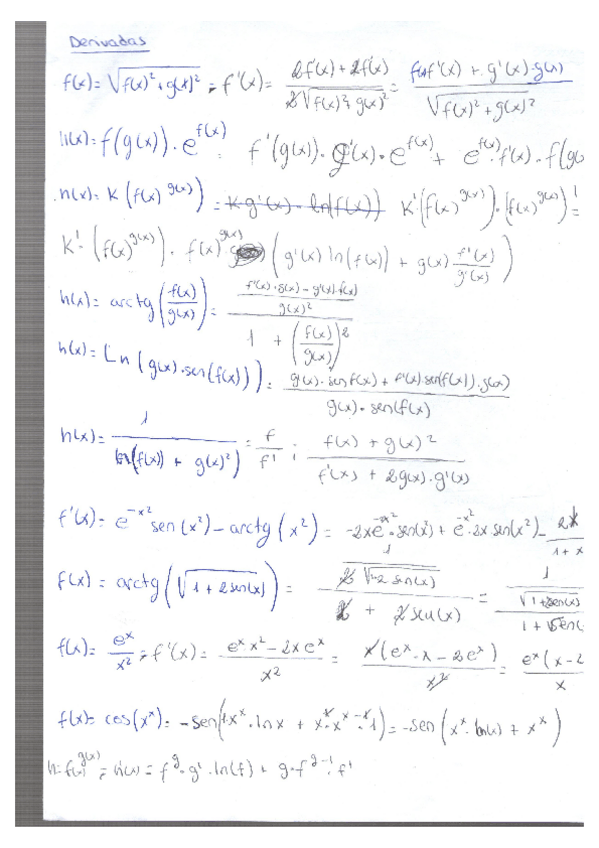 Derivadas
f(x)= √(f(x)²+g(x)²) ; f'(x)= (2f'(x)+2f(x))/(2√(f(x)²+g(x)²)) = (f(x)f'(x) + g'(x)·g(x))/√(f(x)²+g(x)²)
h(x)= f(g(x))·e^f(x) f'(g(x))·g'(x)·e^f(x) + e^f(x)·f'(x)·f(g(x
h(x)= K(f(x)^g(x)) = K·g'(x)·ln(f(x)) K'(f(x)^g(x))·(f(x)^g(x))' =
K'·(f(x)^g(x))·f(x)^g(x) (g'(x) ln(f(x)) + g(x) f'(x)/g'(x))
h(x)= arctg(f(x)/g(x)) = ((f'(x)·g(x)-g'(x)·f(x))/g(x)²)/(1 + (f(x)/g(x))²)
h(x)= Ln(g(x)·sen(f(x))) = (g'(x)·sen f(x) + f'(x)·sen(f(x))·g(x))/(g(x)·sen(f(x))
h(x)= 1/(ln(f(x)) + g(x)²) = f/f' ; (f(x) + g(x)²)/(f'(x) + 2g(x)·g'(x))
f'(x)= e^-x² sen(x²) - arctg(x²) = -2xe^-x²·sen(x²) + e^-x²·2x sen(x²) - 2x/(1+x
f(x)= arctg(√(1+2sen(x))) =
f(x)= e^x/x² ; f'(x)= (e^x·x²-2xe^x)/x² = x(e^x·x-2e^x)/x² = e^x(x-2/x
f(x)= cos(x^x) = -sen(x^x·lnx + x·x^(x-1)·1) = -sen(x^x·ln(x) + x^x)
h=f(x)^g(x) ; h'(x)= f^g·g'·ln(f) + g·f^(g-1)·f'